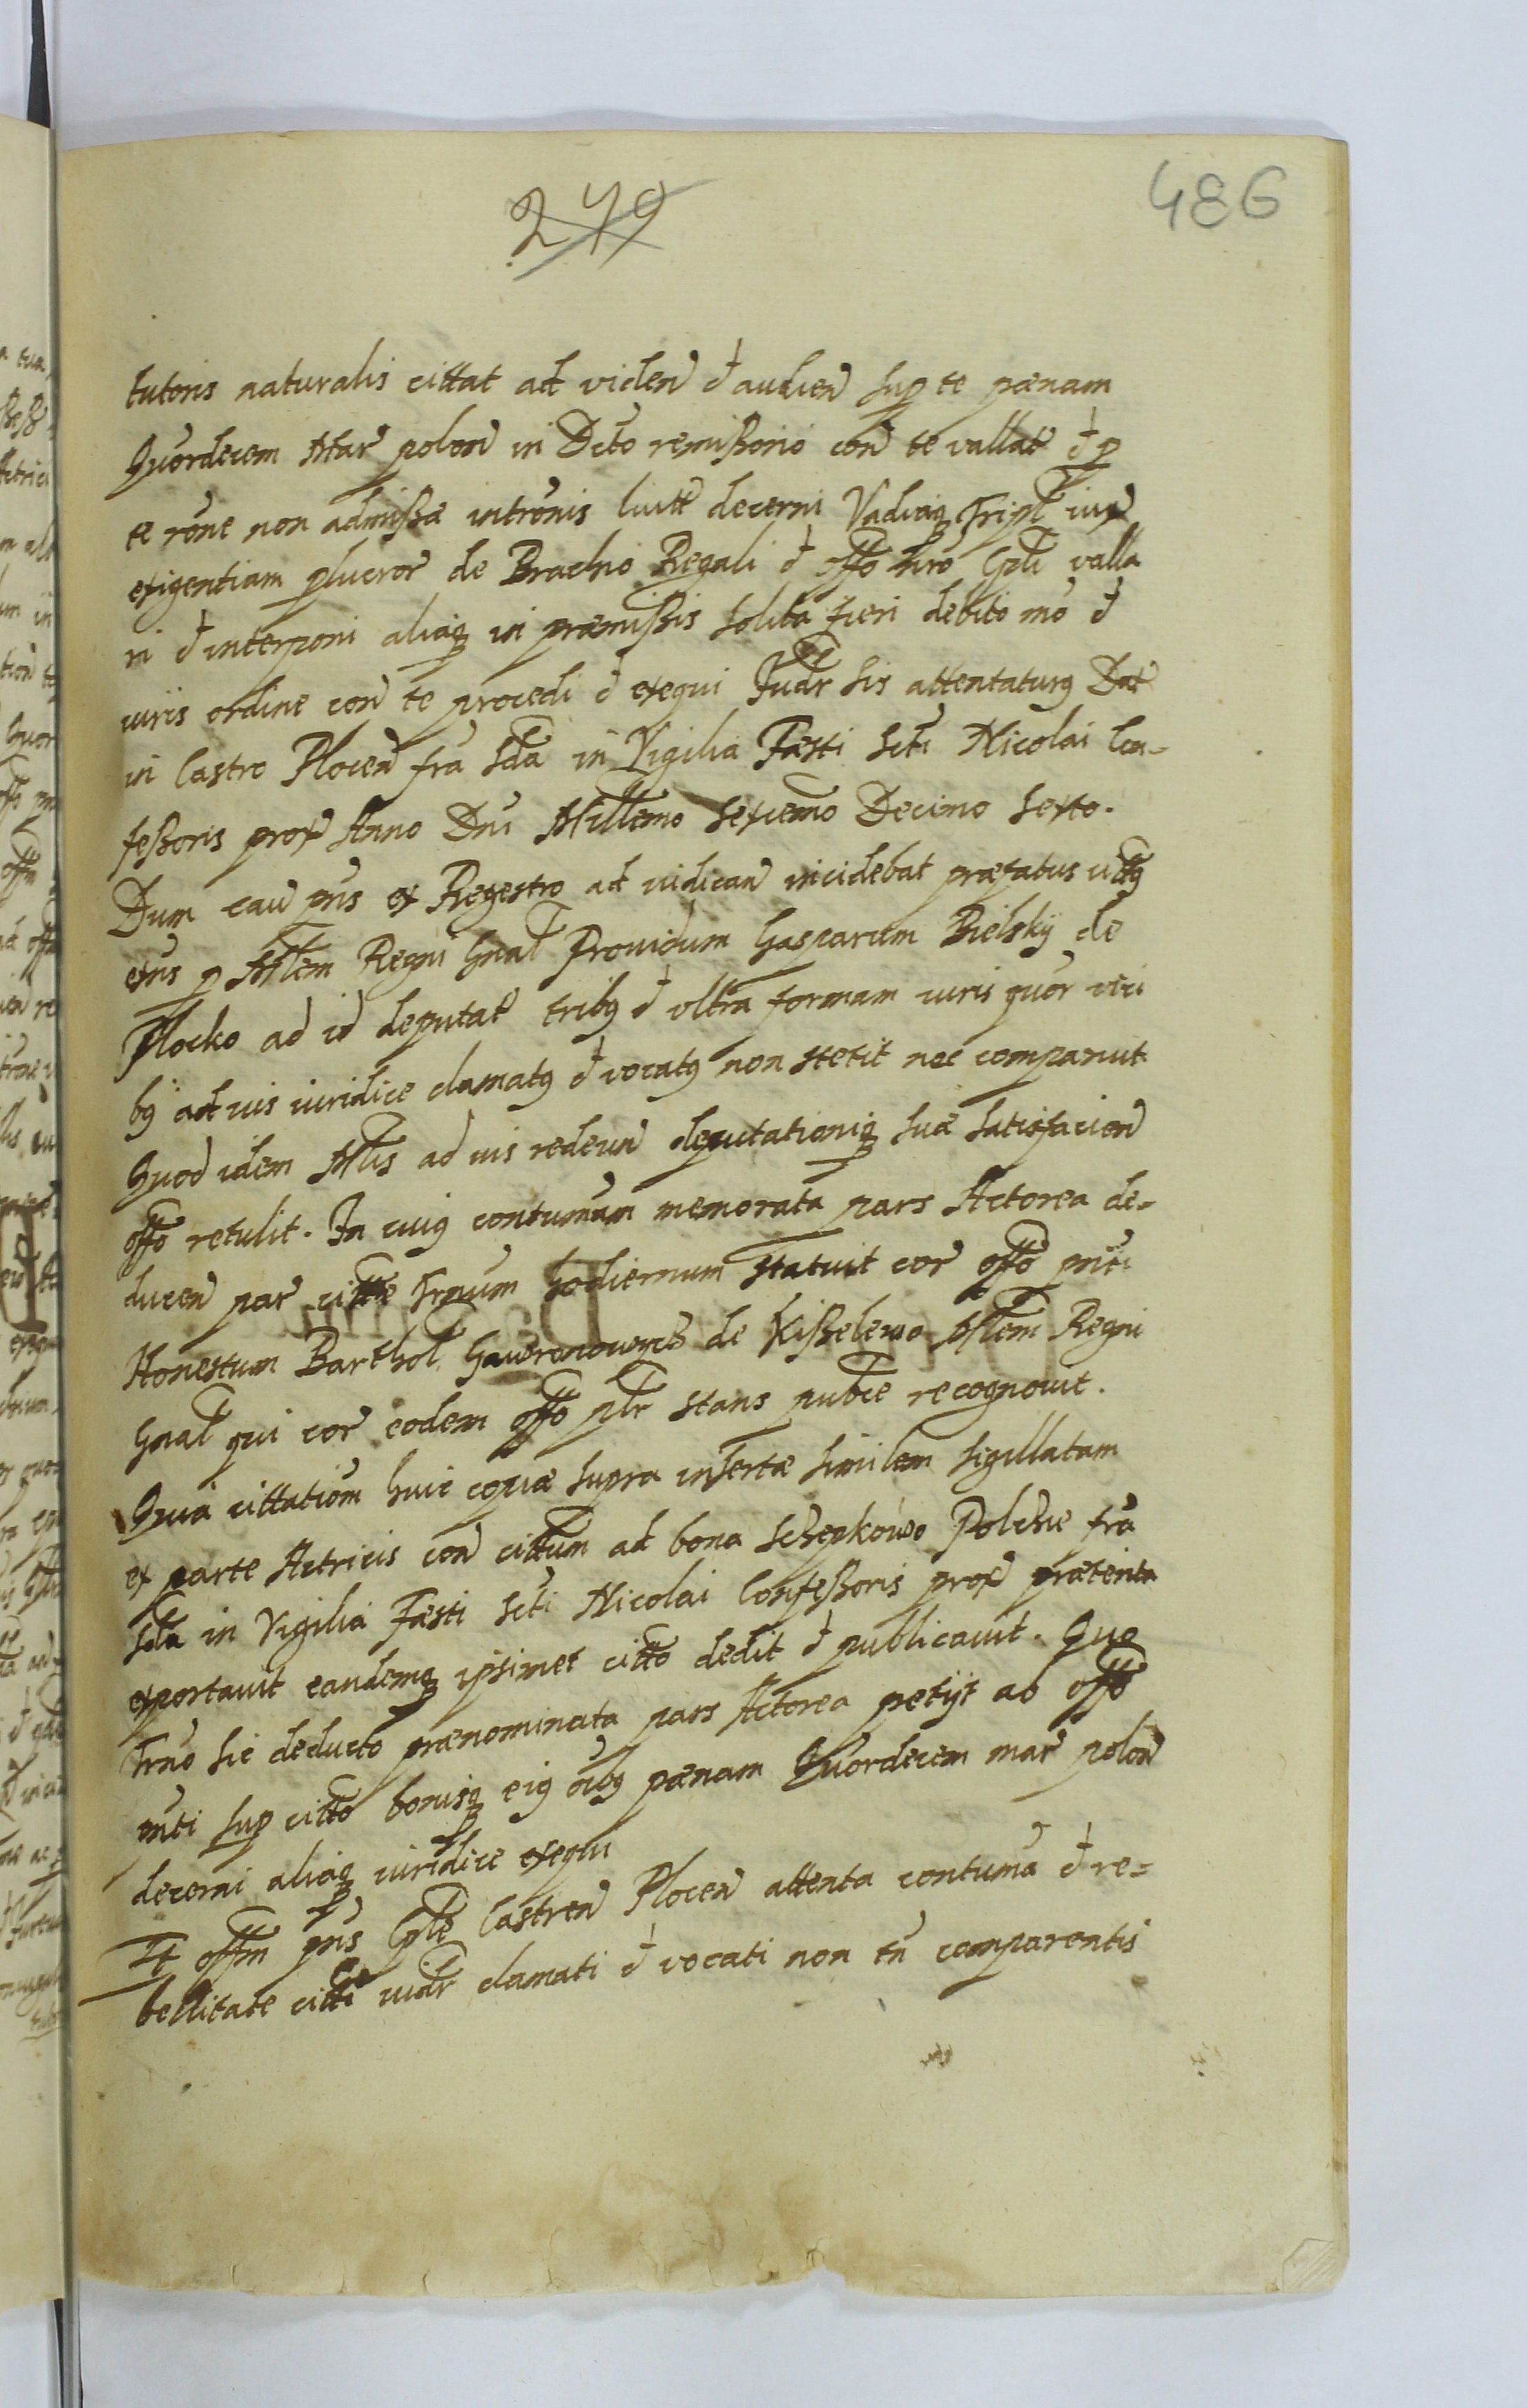 279
486
tutoris naturalis cittat ad viden et audien sup te pœnam
Quordecem Mar polon in Dcto remissorio con te vallat et p
te rone non admissæ intronis luitt decerni Vadiaq Tripl iux
exigentiam plucror de Brachio Regali et offo nro Cpli valla
ri et interponi aliaq in præmissis solita fieri debito mo et
iuris ordine con te procedi et exequi Iudr sis attentaturg Dat
in Castro Plocen fra Scda in Vigilia Fæsti Scti Nicolai Con-
fessoris prox Anno Dni Millemo Sexcemo Decimo Sexto.
Dum cau pns ex Regestro ad iudican incidebat præfatus cittg
extus p Mlem Regni Gnal Prouidum Gasparum Bielsky de
Plocko ad id deputat tribg et vltra formam iuris quor vici
bg ad ius iuridice clamatg et vocatg non stetit nec comparuit
Quod idem Mlis ad ius redeun deputationiq suæ satisfacien
offo retulit. In cuig contumam memorata pars Actorea de-
ducen par citte Trnum hodiernum statuit cor offo pnti
Honestum Barthol Gawronowycz de Kisselewo Mlem Regni
Gnal qui cor eodem offo plr stans pubce recognouit.
Quia cittationm huic copiæ supra insertæ similem sigillatam
ex parte Actricis con cittum ad bona Schepkowo Polchie fra
Scda in Vigilia Fæsti Scti Nicolai Confessoris prox præterita
exportauit eandemq ipsimet citto dedit et publicauit. Quo
Trno sic deducto prænominata pars Actorea petijt ab offo
pnti sup citto bonisq eig oibg pœnam Quordecem mar polon
decerni aliaq iuridice exequi
Et offm pns Cple Castren Plocen attenta contuma et re-
bellitate citti iudr clamati et vocati non tn comparentis